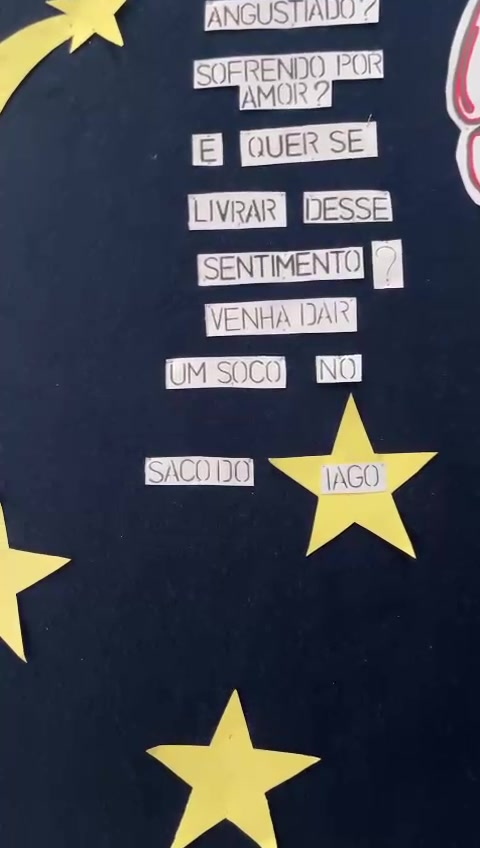 ANGUSTIADO?
SOFRENDO POR
AMOR?
E QUER SE
LIVRAR DESSE
SENTIMENTO?
VENHA DAR
UM SOCO NO
SACO DO IAGO